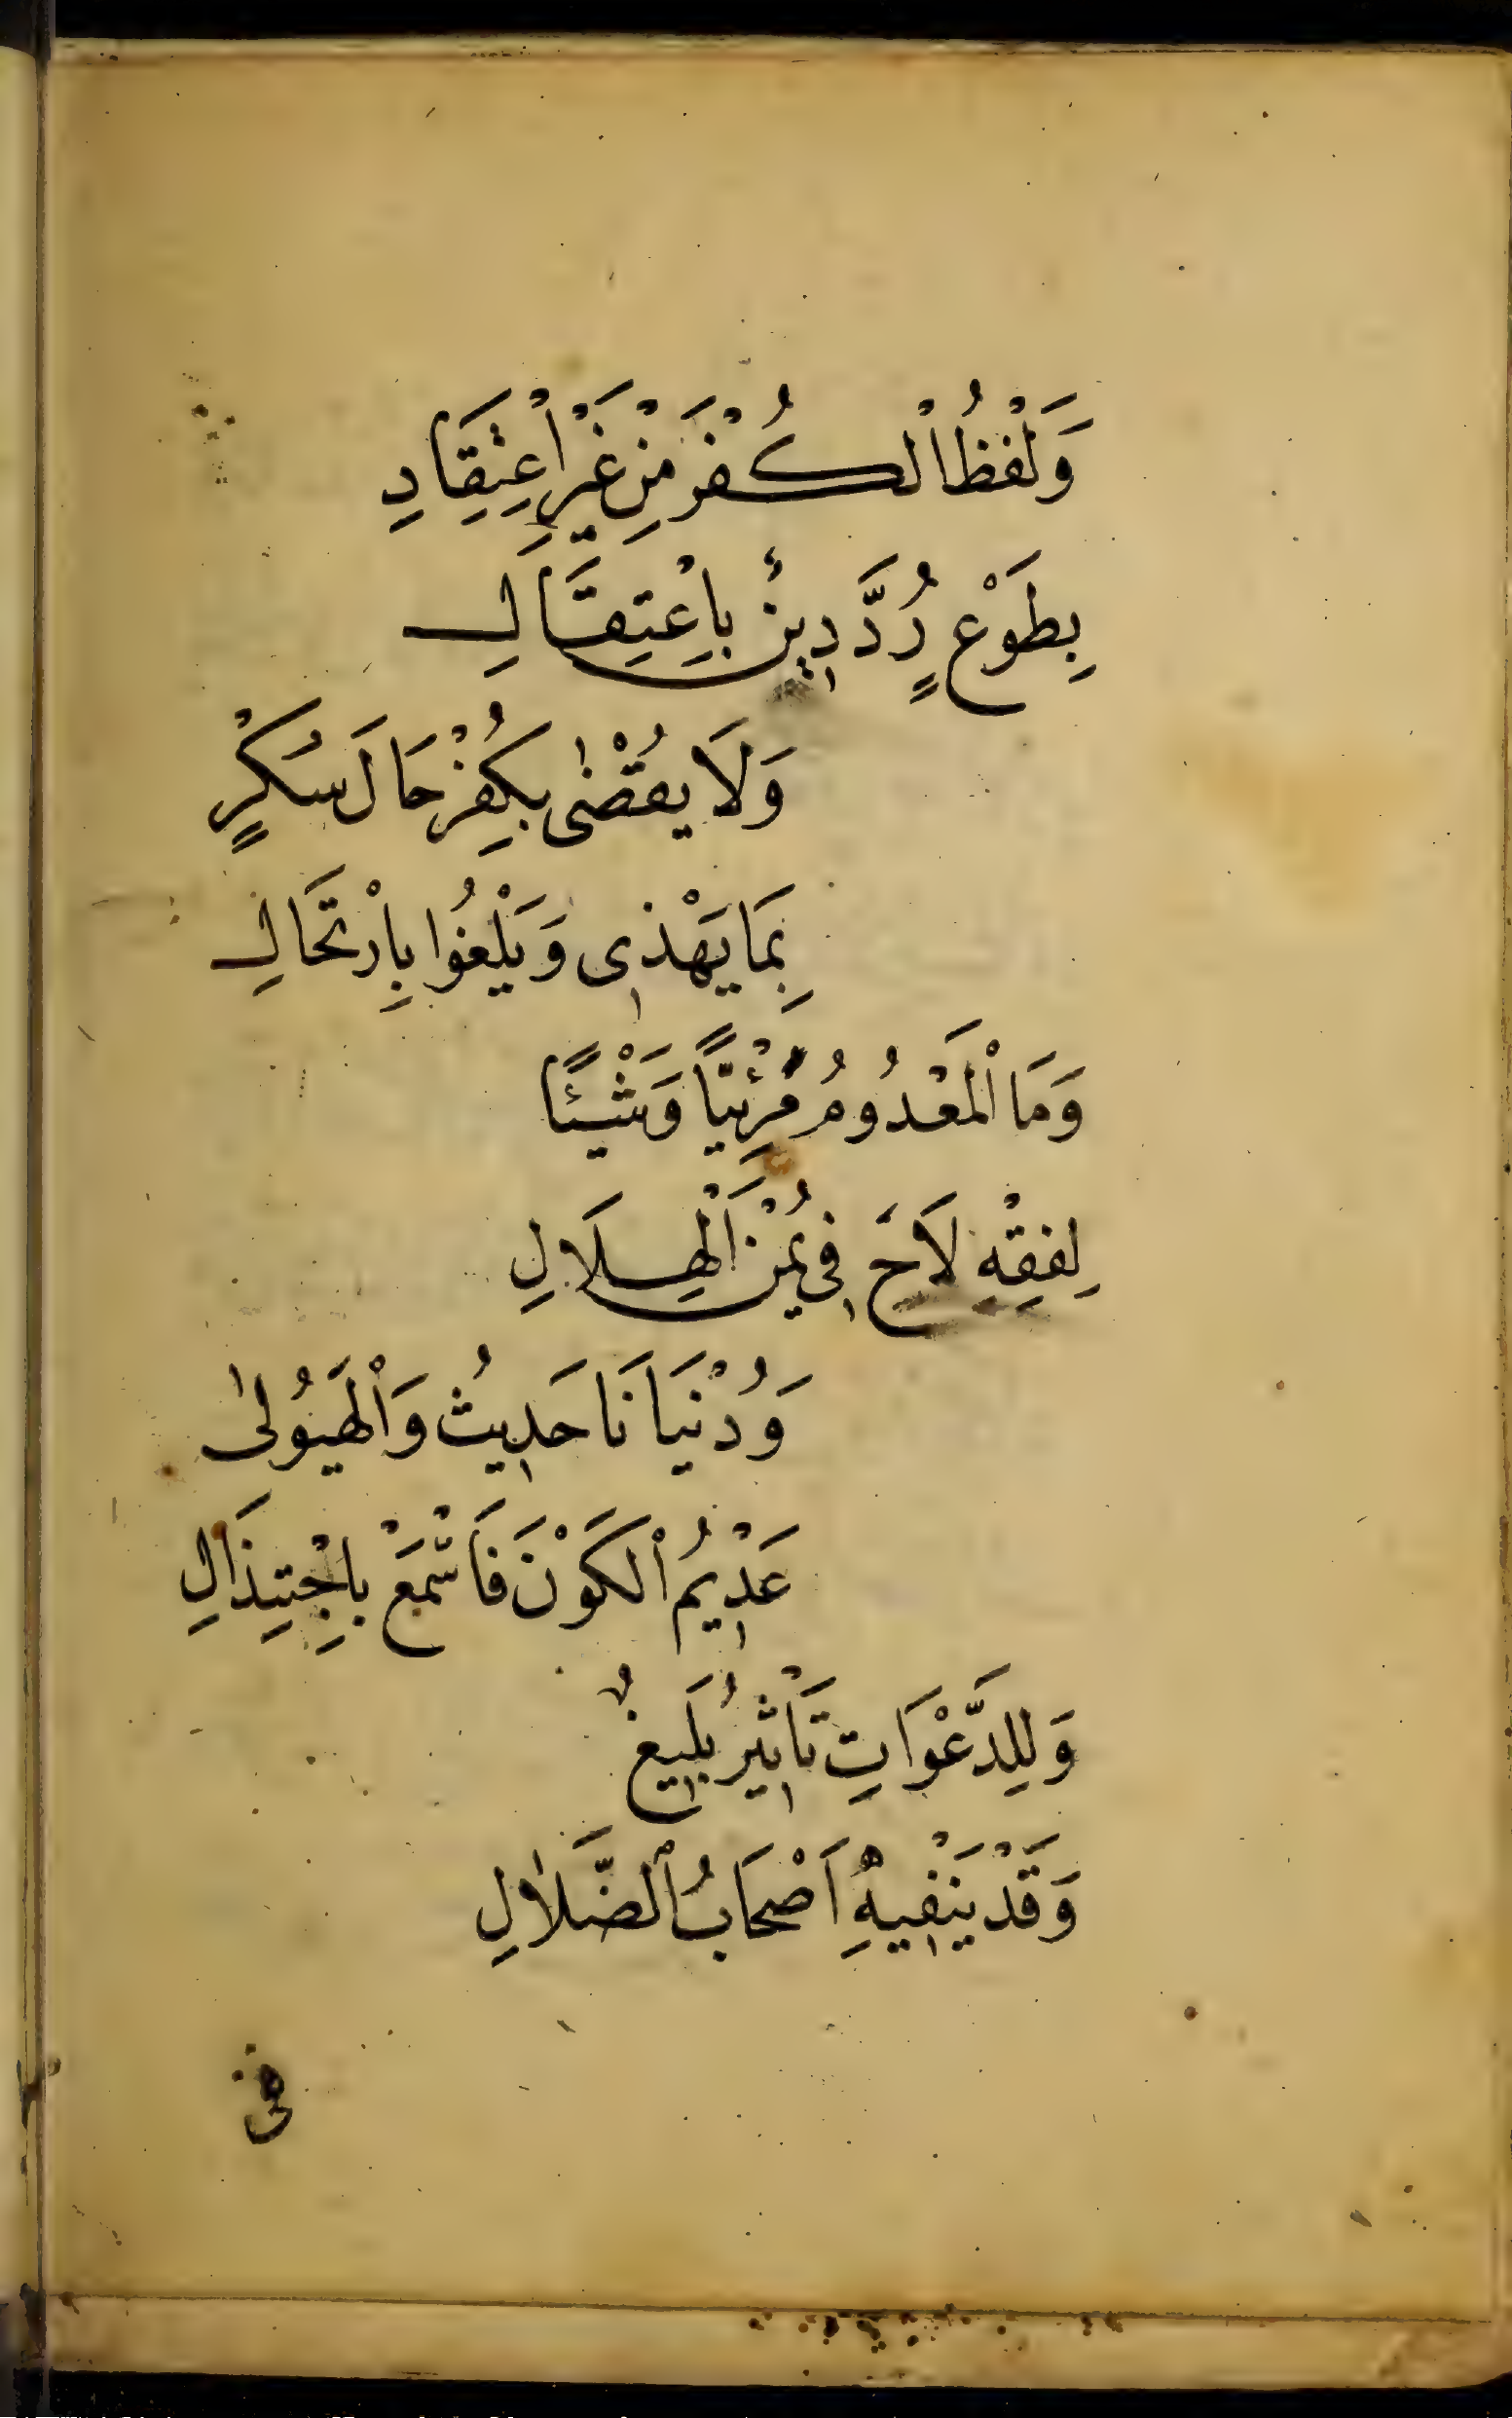 وَلَفْظُ الْكُفْرِ مِنْ غَيْرِ اعْتِقَادِ
بِطَوْعٍ رُدَّ دِينٌ بِاعْتِقَالِ
وَلَا يُقْضٰى بِكُفْرٍ حَالَ سُكْرٍ
بِمَا يَهْذِى وَيَلْغُوا بِارْتِحَالِ
وَمَا الْمَعْدُومُ مَرْئِيًّا وَشَيْئًا
لِفِقْهٍ لَاحَ فِى يُمْنِ الْهِلَالِ
وَدُنْيَانَا حَدِيثٌ وَالْهَيُولٰى
عَدِيمُ الْكَوْنِ فَاسْمَعْ بِاجْتِذَالِ
وَلِلدَّعَوَاتِ تَأْثِيرٌ بَلِيغٌ
وَقَدْ يَنْفِيهِ أَصْحَابُ الضَّلَالِ